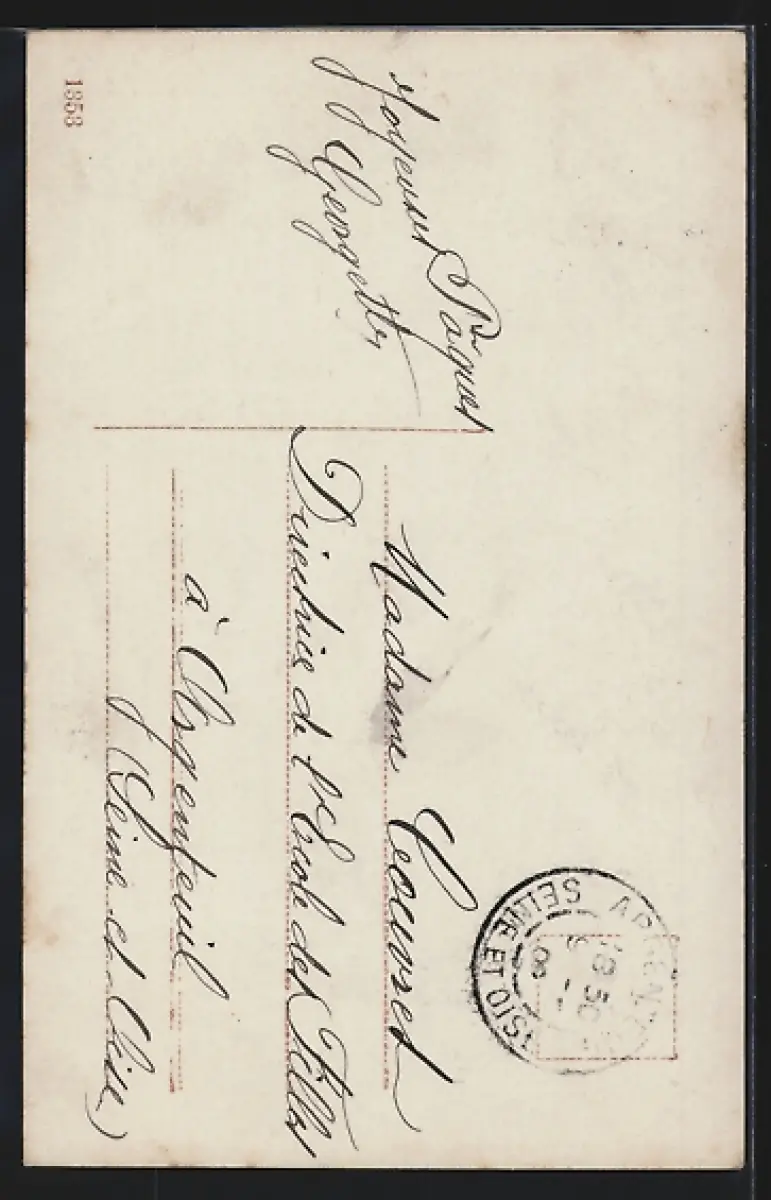 Joyeuses Pâques
Georgette
Madame Couvret
Directrice de l'Ecole des Filles
à Argenteuil
(Seine et Oise)
ARGENTEUIL
SEINE ET OISE
1353